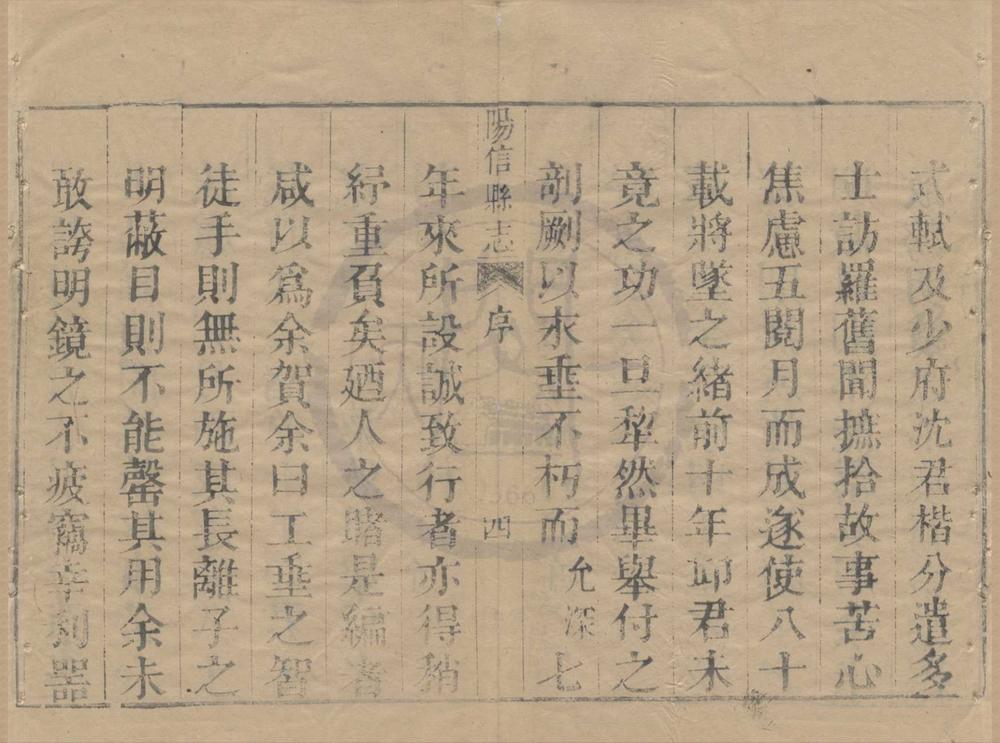 式軾及少府沈君楷分遣多
士訪羅舊聞摭拾故事苦心
焦慮五閱月而成遂使八十
載將墜之緒前十年邱君未
竟之功一旦犂然畢舉付之
剞劂以求垂不朽而允深七
陽信縣志 序 四
年來所設誠致行者亦得稍
紓重負矣廼人之睹是編者
咸以為余賀余曰工垂之智
徒手則無所施其長離子之
明蔽目則不能罄其用余未
敢誇明鏡之不疲竊幸利器